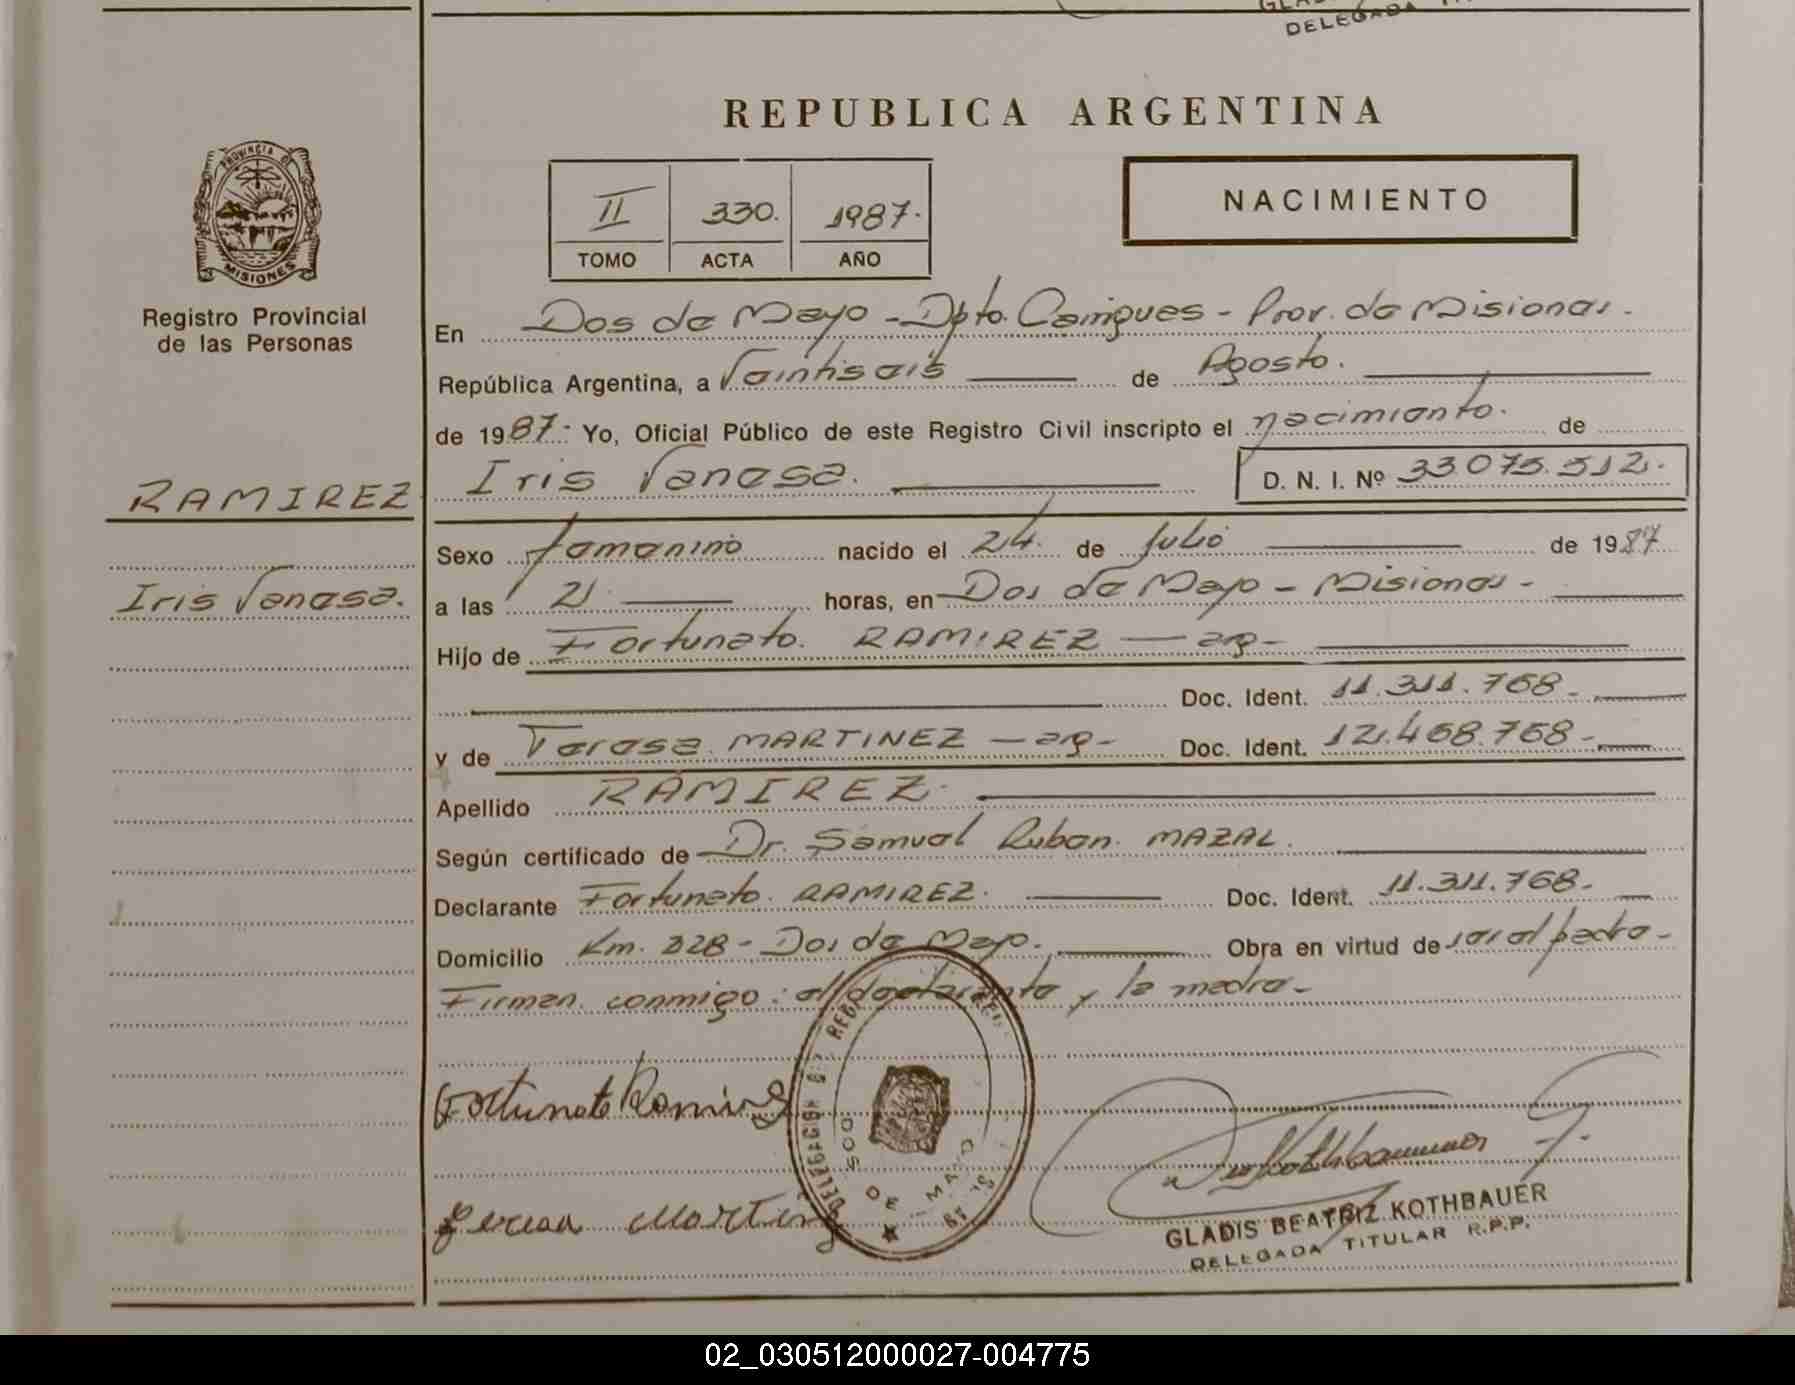 DELEGADA
REPUBLICA ARGENTINA
PROVINCIA DE
MISIONES
Registro Provincial
de las Personas
II 330. 1987.
TOMO ACTA AÑO
NACIMIENTO
En Dos de Mayo - Dpto. Cainguas - Prov. de Misiones.
República Argentina, a Veintiseis de Agosto.
de 1987.- Yo, Oficial Público de este Registro Civil inscripto el nacimiento. de
Iris Vanesa. D. N. I. Nº 33.075.512.
RAMIREZ
Sexo femenino nacido el 24. de Julio de 1987
Iris Vanesa.
a las 21 horas, en Dos de Mayo - Misiones -
Hijo de Fortunato. RAMIREZ — arg-
Doc. Ident. 11.311.768-
y de Teresa. MARTINEZ — arg- Doc. Ident. 12.468.768-
Apellido RAMIREZ.
Según certificado de Dr. Samuel Ruben. MAZAL.
Declarante Fortunato. RAMIREZ. Doc. Ident. 11.311.768.
Domicilio Km. 228 - Dos de Mayo. Obra en virtud de ser el padre -
Firman conmigo: el declarante y la madre -
Fortunato Ramirez
DELEGACION
DOS DE MAYO
Teresa Martinez
Kothbauer
GLADIS BEATRIZ KOTHBAUER
DELEGADA TITULAR R.P.P.
02_030512000027-004775